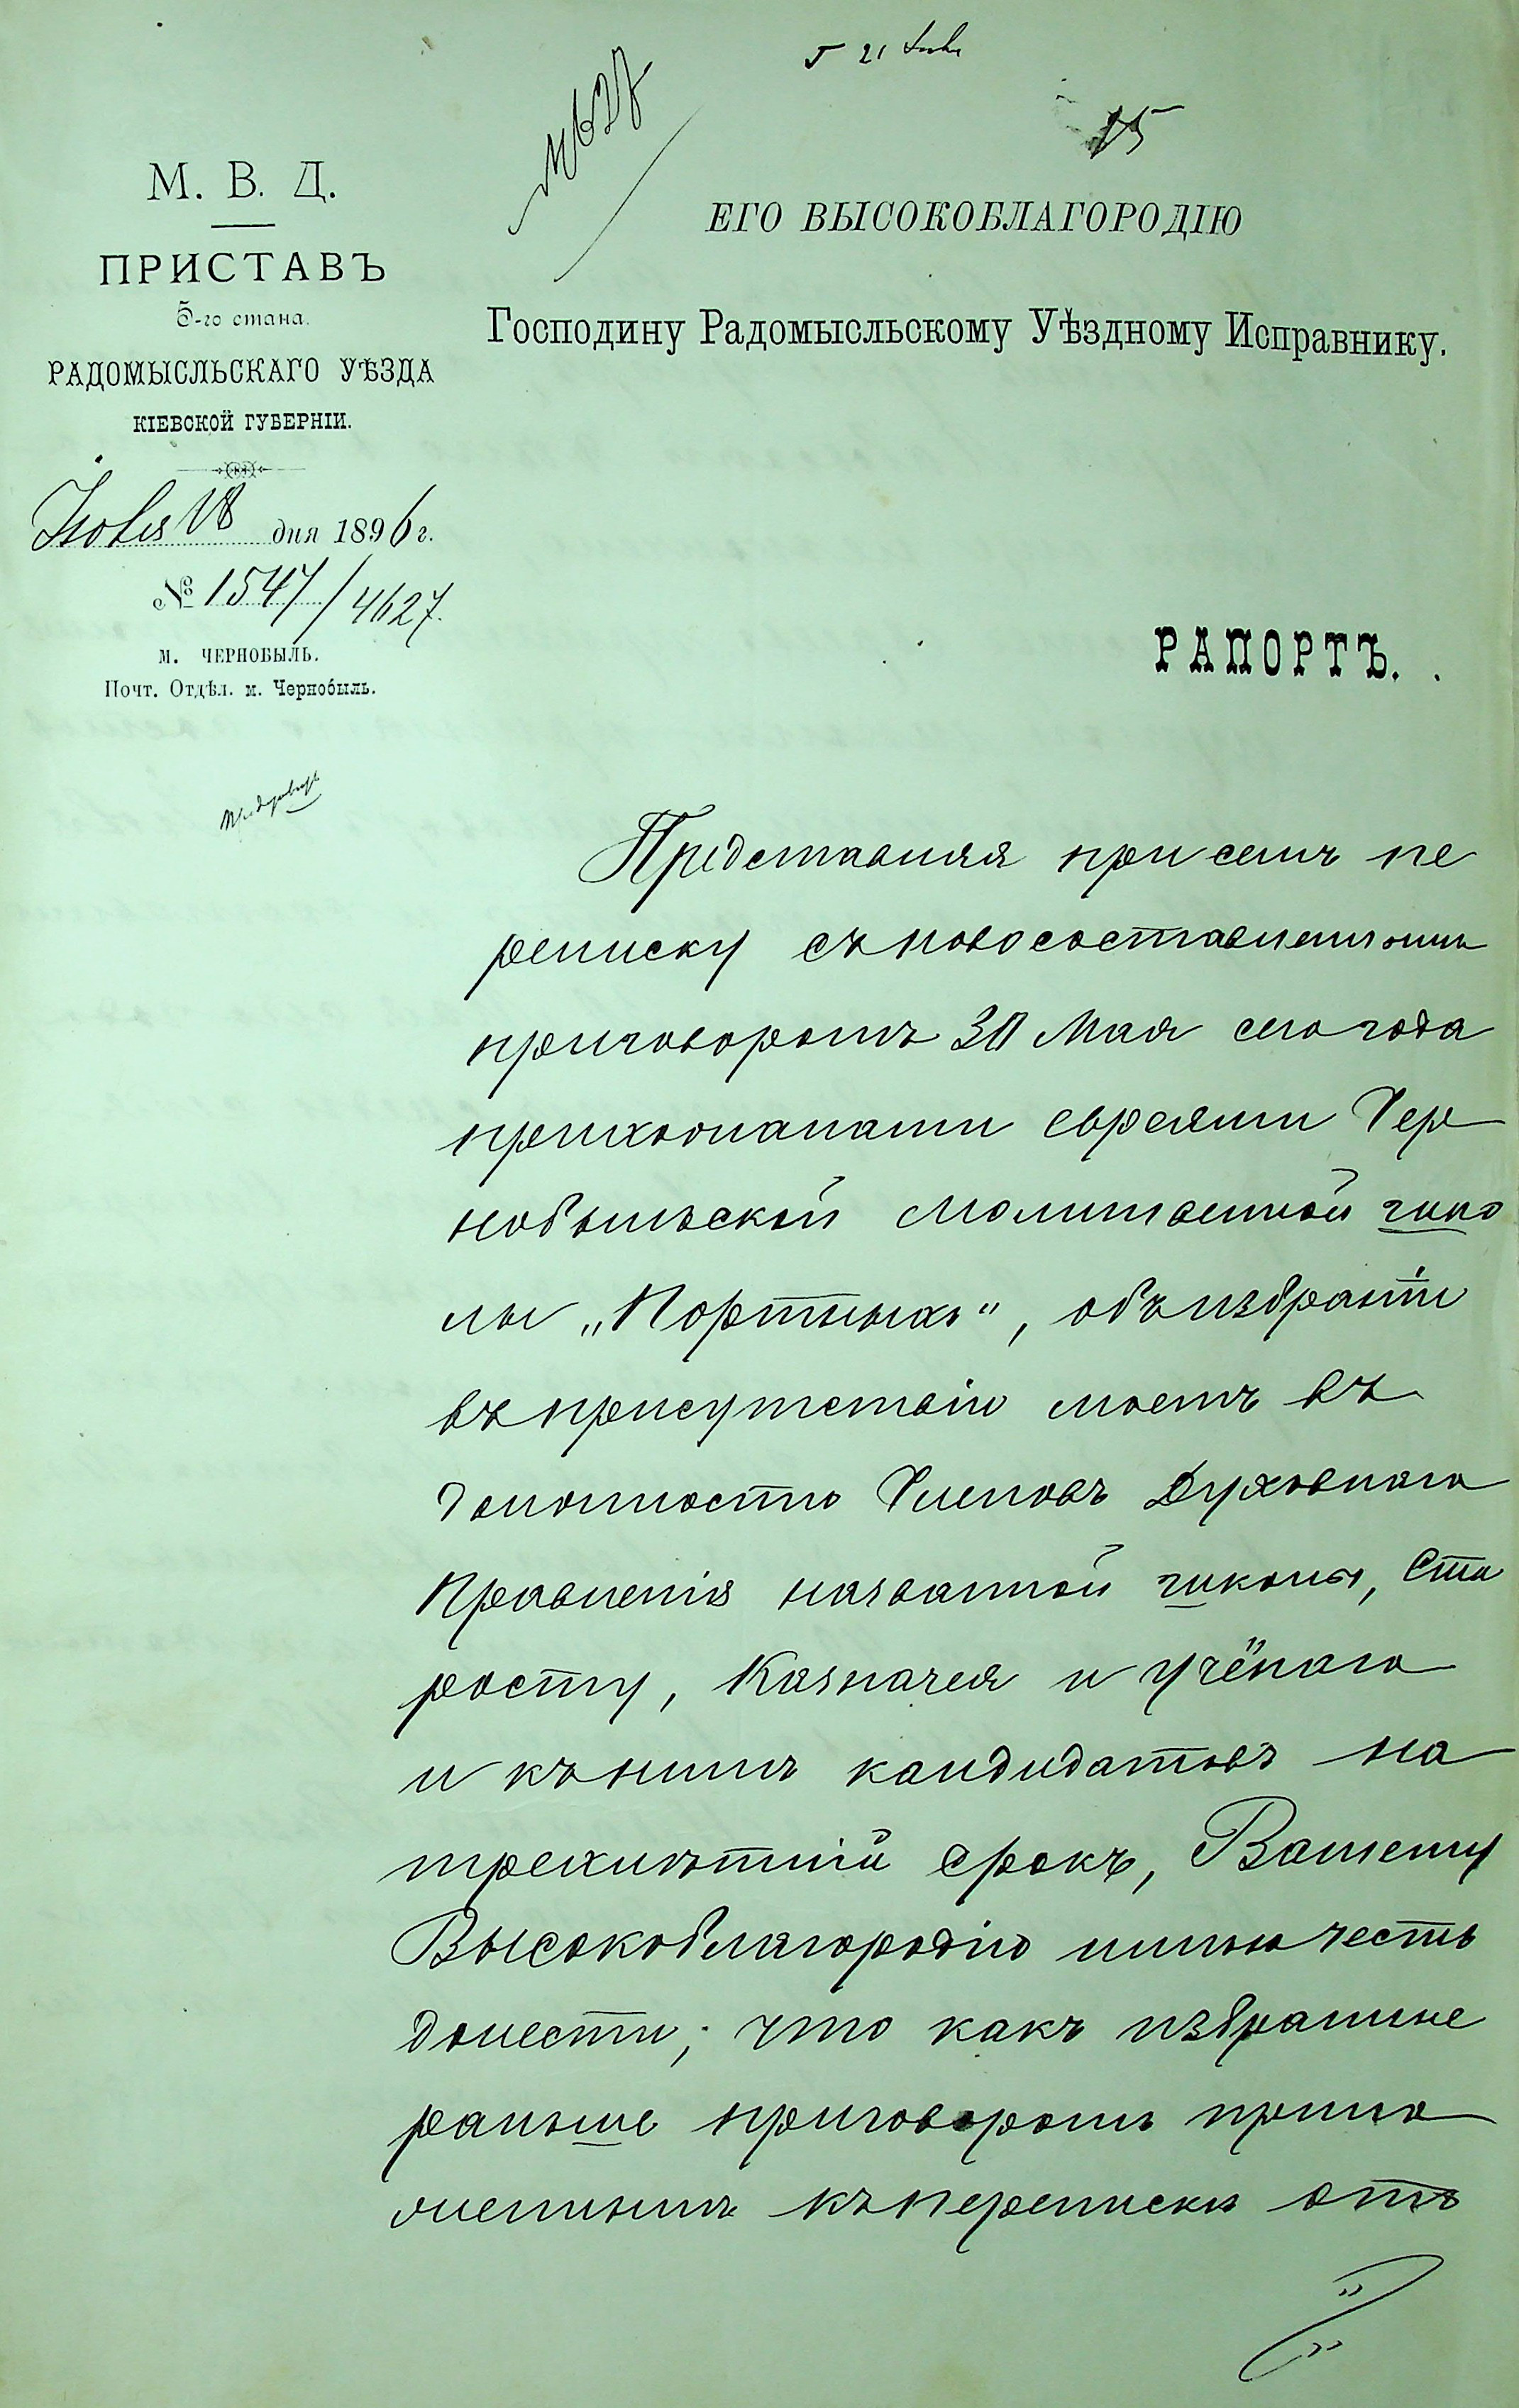 75
М. В. Д.
ПРИСТАВЪ
5-го стана.
РАДОМЫСЛЬСКАГО УѢЗДА
КІЕВСКОЙ ГУБЕРНІИ.
18 дня 1896 г.
№ 1547/4627.
м. ЧЕРНОБЫЛЬ.
Почт. Отдѣл. м. Чернобыль.
ЕГО ВЫСОКОБЛАГОРОДІЮ
Господину Радомысльскому Уѣздному Исправнику.
РАПОРТЪ.
Представляя при семъ пе
реписку съ новосоставленнымъ
приговоромъ 30 Мая сего года
прихожанами евреями Чер
нобыльской молитвенной шко
лы „Портныхъ", объ избраніи
въ присутствіи моемъ въ
должность Членовъ Духовнаго
Правленія названной школы, Ста
росту, Казначея и учёнаго
и къ нимъ кандидатовъ на
трехлѣтній срокъ, Вашему
Высокоблагородію имѣю честь
донести, что какъ избранные
раньше приговоромъ прило
женнымъ къ перепискѣ отъ